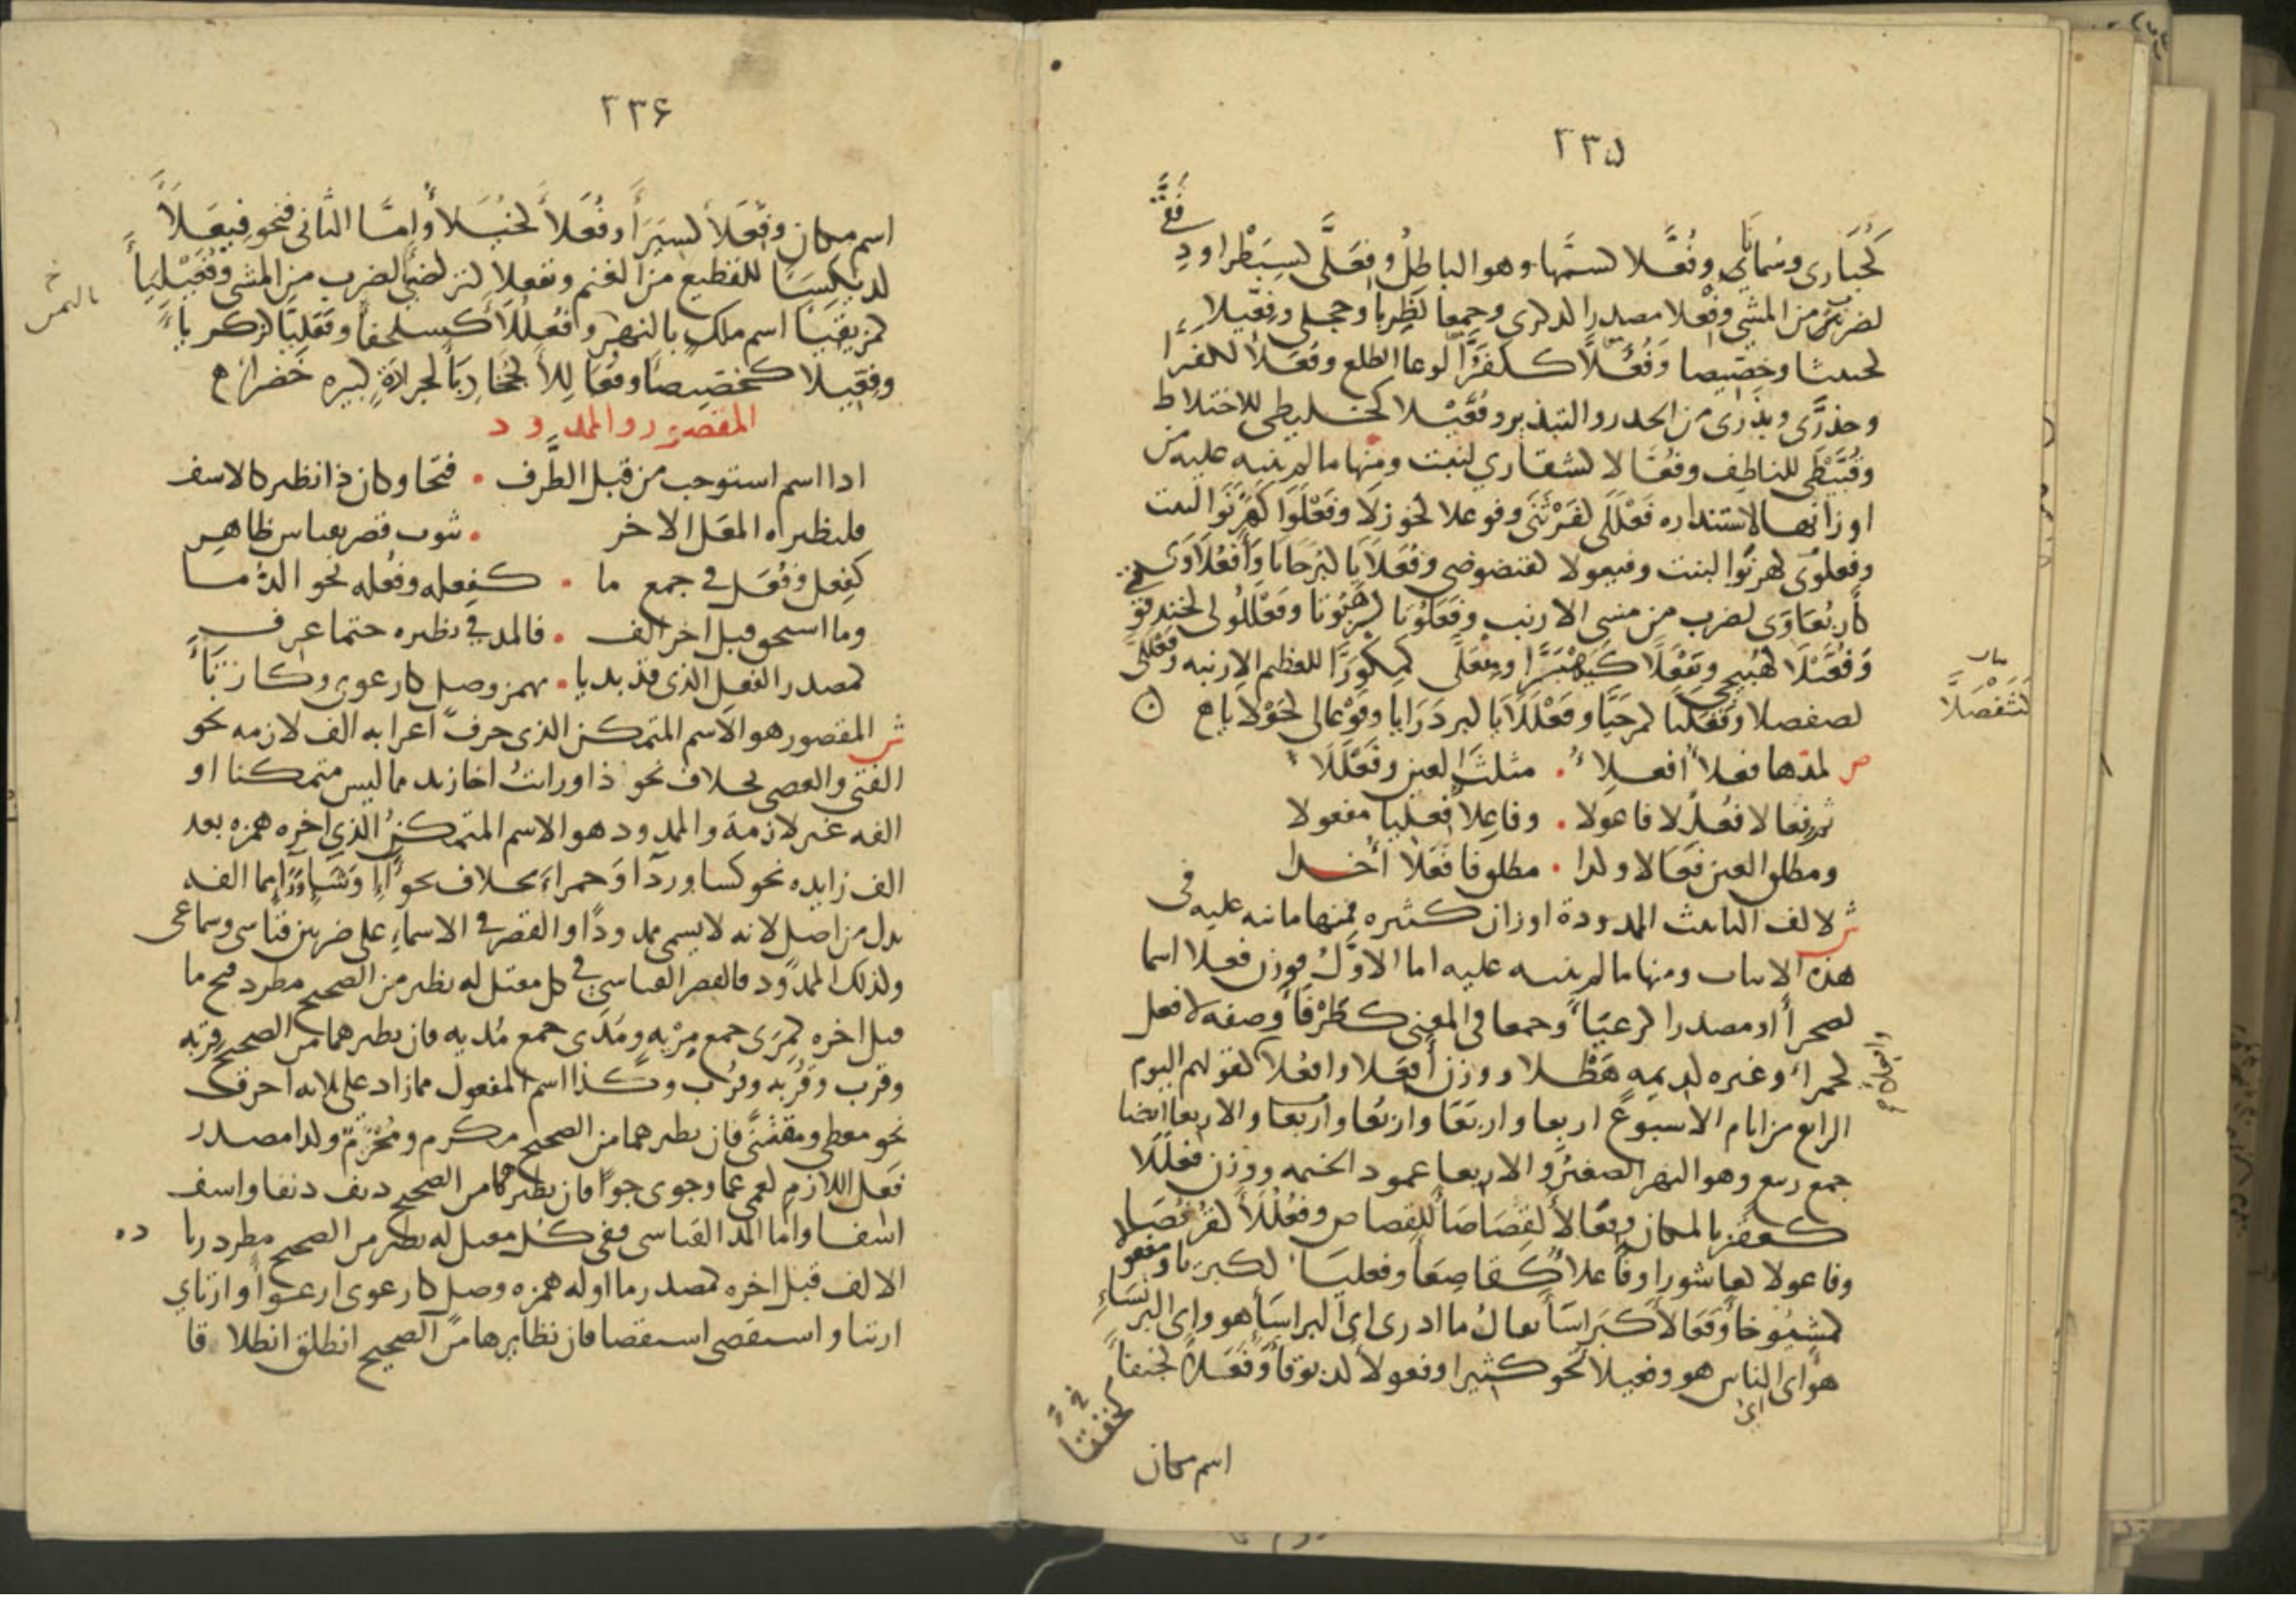 ٢٣٥
كَحُبَارى وسُمانى وفُعَّلا لسمَّها وهو الباطل وفِعَلَّى لسِبَطْرا ود
لضربين من المشي وفِعْلا مصدرا لدكرى وجمعا لظربا وحجلى وفعيلا
لحثيثا وخصيصا وفُعُلاَّ كـكفرَّا لوعا الطلع وفعلا للكفرَّا
وحذرَّى وبذرَّى من الحدر والتبذير وفُعَّيْلا كخليطى للاختلاط
وقُبَّيْطَى للناطف وفعّالا لشقارى لنبت ومنها ما لم ينبه عليه من
اوزانها لاستنداره فَعْلَلَى لقَرْثَنَى وفوعلا لخوزلا وفَعْلَوَا لهَرْنَوَا لنبت
وفعلوى لهرنوا لنبت وفيعولا لفيضوضى وفُعَلَايَا لبُرَحَايا وأفعُلاوَى
كأربُعَاوَى لضرب من مشى الارنب وفَعَلُوتا لرهبوتا وفَعْلَلُولى لحندقوقى
وَفُعَّيْلَا لهبيخى ويَفْعَلَّا كَيَهْيَرَّا ومِفْعَلَّى لمكورَّا للعظيم الارنبه وفعْلَلَّى
لصفصلا وفَعَلَيا لمرحَيَّا وفَعْلَلَايَا لبردَرَايَا وفَوْعالى لحَوْلايا ه
ص لمدّها فعلاء افعلاء . مثلث العين وفَعْلَلَاء
ثم فعالا فُعْلُلا فاعولا . وفاعلاء فعليا مفعولا
ومطلق العين فعالا وكدا . مطلق فا فعلاء أُخـدا
ش لالف التانيث الممدودة اوزان كثيره فمنها ما نبه عليه في
هذه الابيات ومنها ما لم ينبه عليه اما الاوَّل فوزن فعلا اسما
لصحرا أو مصدرا لرغبَاء وجمعا في المعنى كطَرْفَاء وصفه لافعل
لحمراء وغيره لديمه هَطْلا ووزن أفعَلا وافعُلا كقولهم اليوم
الرابع من ايام الاسبوع اربعا واربَعَا واربُعا واربعا والاربعا ايضا
جمع ربيع وهو النهر الصغير والاربعا عمود الخيمه ووزن فعْلَلَا
كعقربا لمكان وفِعَالا لقِصَاصَا للقصاص وفُعْلُلَا لقُرْفُصَا
وفاعولا لعاشورا وفاعلا كقاصِعَا وفعليا لكبريا ومفعو
لمشيُوخا وفَعَالا كبَراسَا يقال ما ادرى اى البراسا هو واى البرنساء
هو اى اى الناس هو وفعيلا نحو كثيرا وفعولا لدبوقا وفَعَلا لجنفا
اسم مكان
٢٣٦
اسم مكان وفِعَلا لسيَرَا وفُعَلا لخُيَلا وامّا الثانى فنحو فيعَلَا
لديكسَا للقطيع من الغنم وتفعلا لتركضا لضرب من المشى وفُعَيْلِيَا
لمزيقيَا اسم ملك باليمن وافعُلَّلا كسلحفا وفَعَلِيَّا لزكرياء
وفعيلا كخصيصا وفُعَالِلا لجُخَادِبَا لجرادة كبيره خضرا ه
المقصور والممدود
ادا اسم استوجب من قبل الطَّرف . فتحا وكان ذا نظير كالاسف
فلنظيره المعل الاخر . ثبوت قصر بقياس ظاهر
كفِعل وفُعَل في جمع ما . كفعله وفُعله نحو الدُّما
وما استحق قبل اخر الف . فالمد في نظيره حتما عرف
كمصدر الفعل الذى قد بديا . بهمز وصل كارعوى وكارتيا
ش المقصور هو الاسم المتمكن الذى حرف اعرابه الف لازمه نحو
الفتى والعصى بخلاف نحو ذا ورايتُ اخا زيد مما ليس متمكنا او
الفه غير لازمة والممدود هو الاسم المتمكن الذى اخره همزه بعد
الف زايده نحو كسا وردا وحمراء بخلاف نحو مما الفه
بدل من اصل لانه لا يسمى ممدودًا والقصر في الاسماء على ضربين قياسى وسماعى
ولذلك الممدود فالقصر القياسى في كل معتل له نظير من الصحيح مطرد فتح ما
قبل اخره لمِرَى جمع مِرْيه ومُدَى جمع مُديه فان نظيرهما من الصحيح قِربه
وقرب وقُربه وقُرب وكذا اسم المفعول مما زاد على ثلاثه احرف
نحو معطى ومقتنىً فان نظيرهما من الصحيح مكرم ومُحْتَرَم وكدا مصدر
فَعَل اللازم لعمى عما وجوى جوًا فان نظيرهما من الصحيح دنف دنفا واسف
اسفا واما المد القياسى ففى كل معتل له نظير من الصحيح مطرد زيا ده
الالف قبل اخره كمصدر ما اوله همزه وصل كارعوى ارعوا وارتاي
ارتيا واستقصى استقصا فان نظايرها من الصحيح انطلق انطلا قا